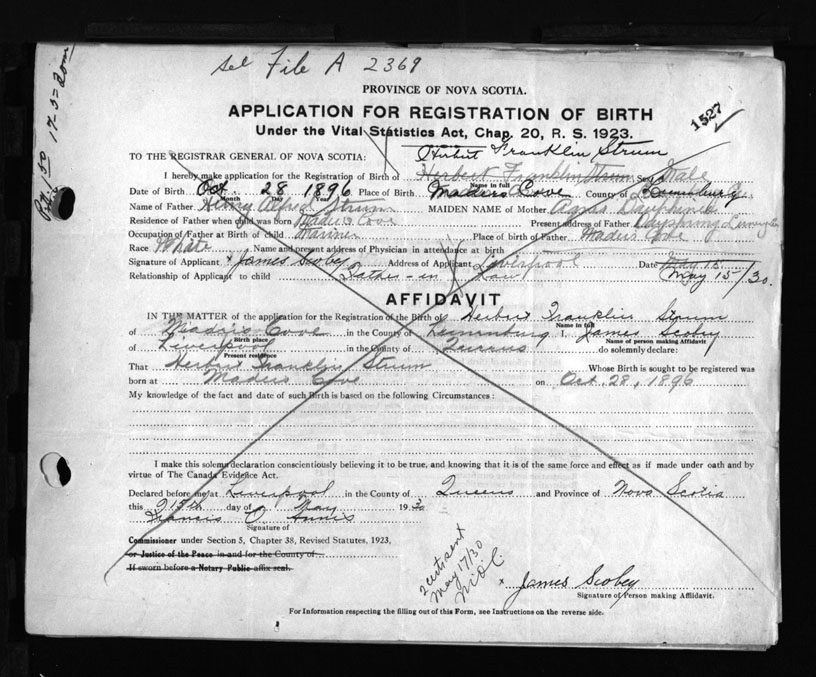 see File A 2369
PROVINCE OF NOVA SCOTIA.
1527
APPLICATION FOR REGISTRATION OF BIRTH
Under the Vital Statistics Act, Chap. 20, R. S. 1923.
Herbert Franklin Strum
TO THE REGISTRAR GENERAL OF NOVA SCOTIA:
I hereby make application for the Registration of Birth of Herbert Franklin Strum Male
Name in full
Date of Birth Oct. 28 1896 Place of Birth Maders Cove County of Lunenburg
Month Day
Name of Father Henry Alfred Strum MAIDEN NAME of Mother Agnes
Residence of Father when child was born Maders Cove Present address of Father
Occupation of Father at Birth of child Mariner Place of birth of Father Maders Cove
Race White Name and present address of Physician in attendance at birth
Signature of Applicant x James Scobey Address of Applicant Liverpool Date May 15
May 15/30.
Relationship of Applicant to child Father-in Law
AFFIDAVIT
IN THE MATTER of the application for the Registration of the Birth of Herbert Franklin Strum
Name in full
of Maders Cove in the County of Lunenburg I, James Scobey
Birth place Name of person making Affidavit
of Liverpool in the County of Queens do solemnly declare:
Present residence
That Herbert Franklin Strum Whose Birth is sought to be registered was
born at Maders Cove on Oct. 28, 1896
My knowledge of the fact and date of such Birth is based on the following Circumstances:
I make this solemn declaration conscientiously believing it to be true, and knowing that it is of the same force and effect as if made under oath and by
virtue of The Canada Evidence Act.
Declared before me at Liverpool in the County of Queens and Province of Nova Scotia
this day of May 1930
Francis
Signature of
Commissioner under Section 5, Chapter 38, Revised Statutes, 1923,
or Justice of the Peace in and for the County of
If sworn before a Notary Public affix seal.
May 17/30
x James Scobey
Signature of Person making Affidavit.
For Information respecting the filling out of this Form, see Instructions on the reverse side.